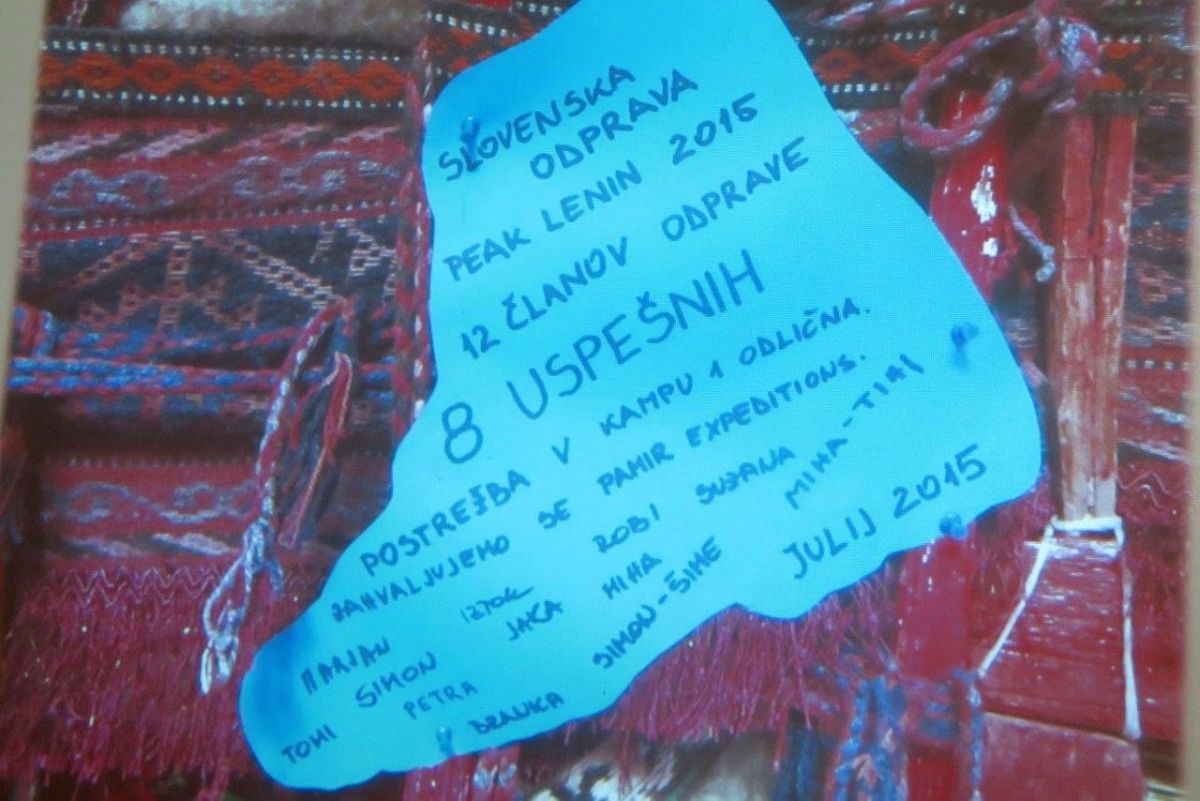 SLOVENSKA
ODPRAVA
PEAK LENIN 2015
12 ČLANOV ODPRAVE
8 USPEŠNIH
POSTREŽBA V KAMPU 1 ODLIČNA.
ZAHVALJUJEMO SE PAMIR EXPEDITIONS.
MARJAN IZTOK ROBI SUZANA MIHA-TIHI
TOMI SIMON JAKA MIHA
PETRA SIMON-ŠIME
BRANKA
JULIJ 2015